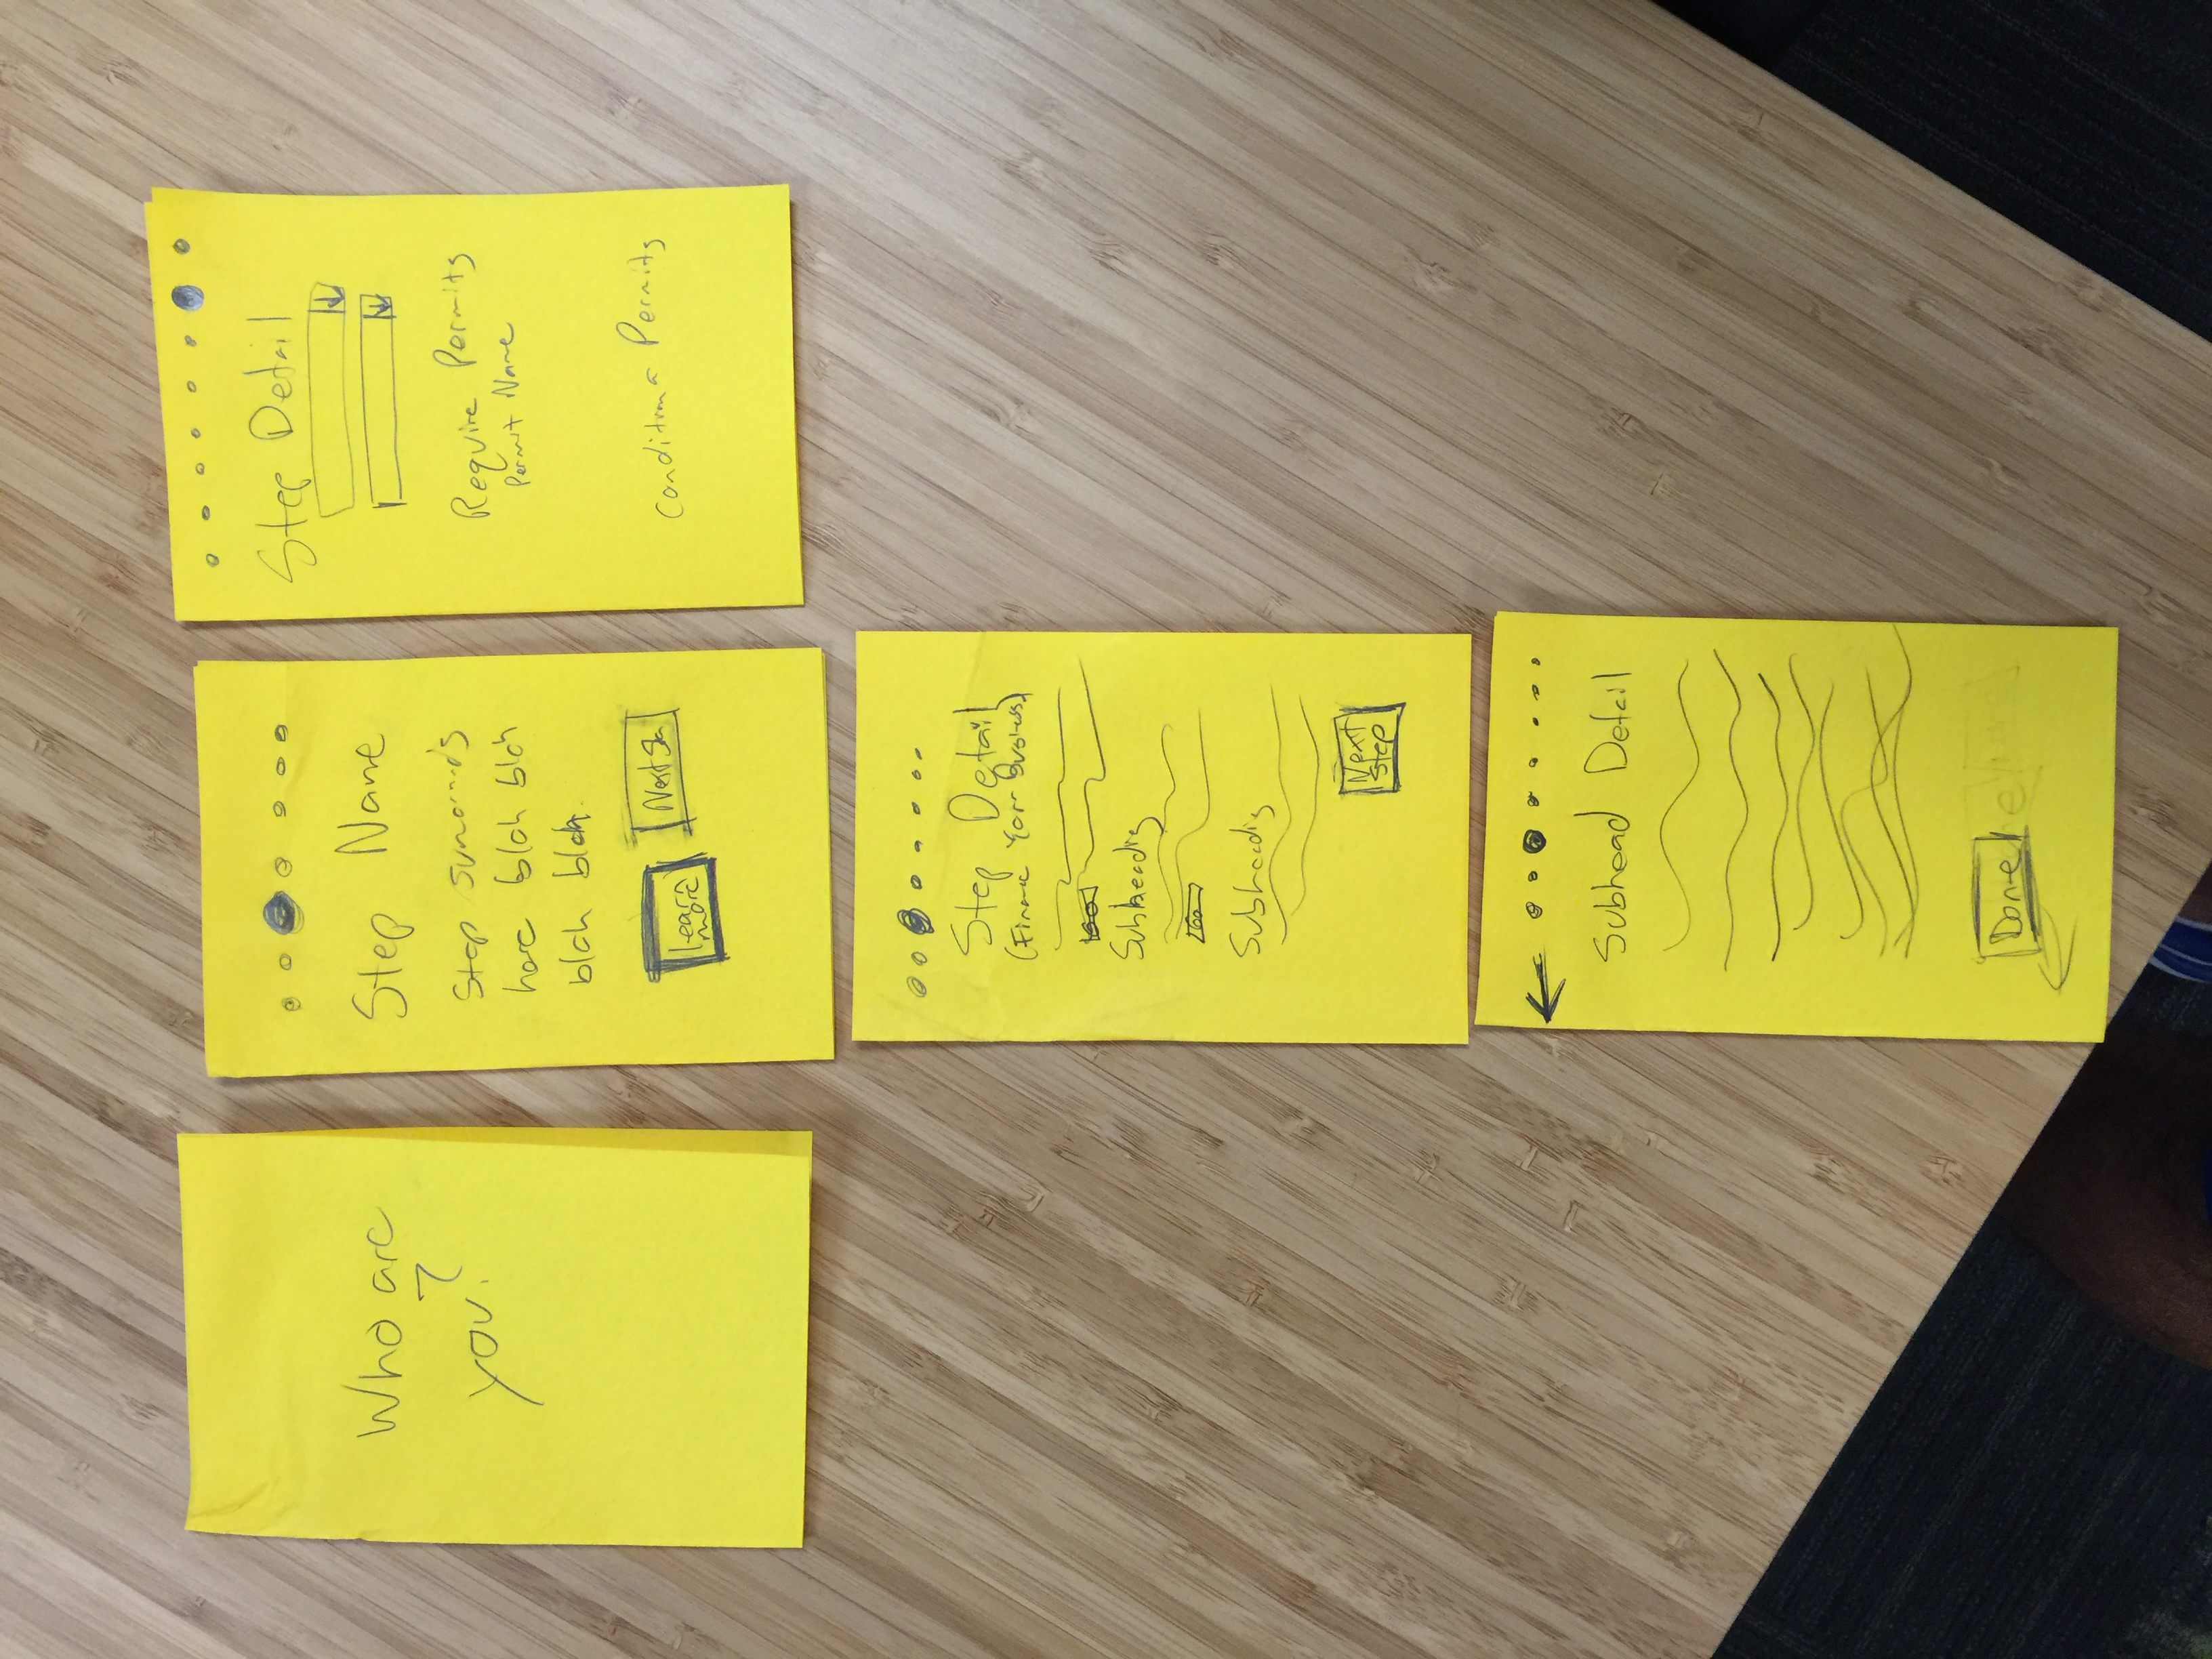 Who are
you?
Step Name
Step
here blah blah
blah blah.
Learn
more
Next
Step Detail
Require Permits
Permit Name
Permits
Step Detail
(Finance Your Business)
Go
Subheading
Go
Subheading
Next
Step
Subhead Detail
Done